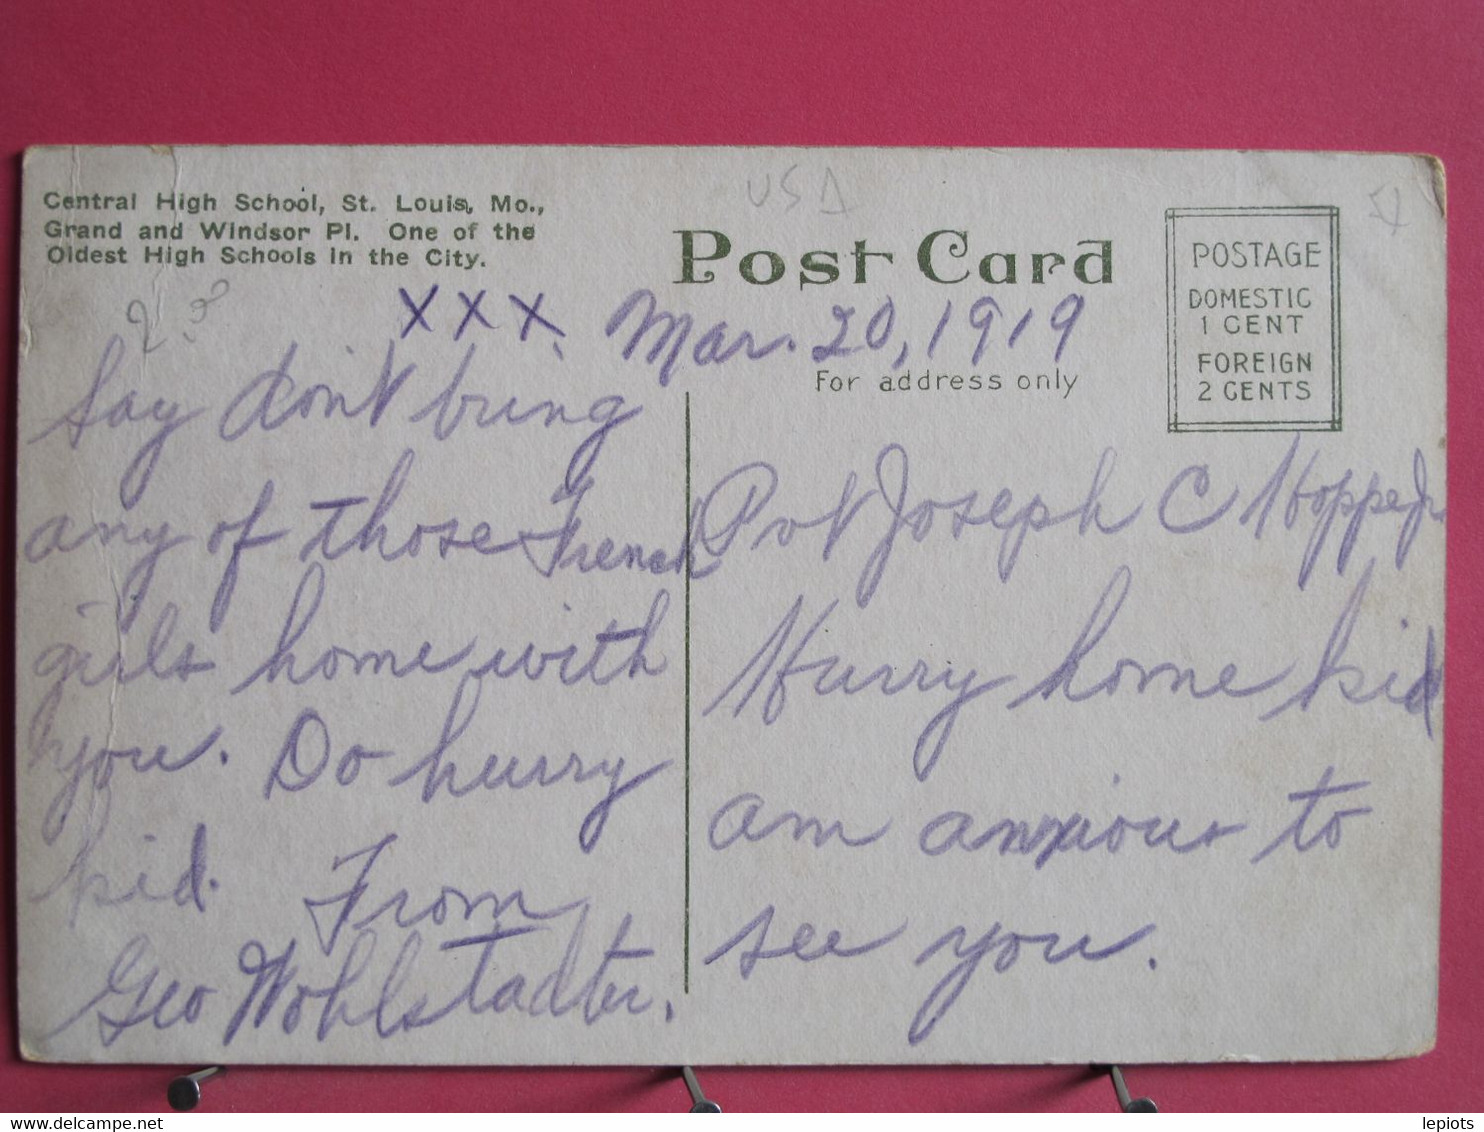 Central High School, St. Louis, Mo.,
Grand and Windsor Pl. One of the
Oldest High Schools in the City.
USA
Post Card
POSTAGE
DOMESTIC
1 CENT
FOREIGN
2 CENTS
XXX. Mar. 20, 1919
For address only
Say don't bring
any of those French
girls home with
you. Do hurry
kid. From
Geo Wohlstadter.
Pvt Joseph C Hoppe Jr
Hurry home kid
am anxious to
see you.
www.delcampe.net
lepiots